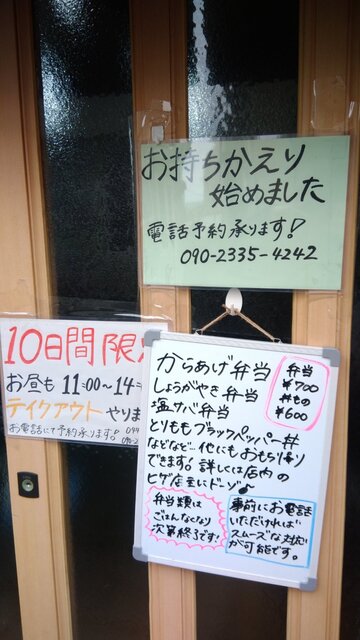 お持ちかえり
始めました
電話予約承ります!
090-2335-4242
10日間限
お昼も 11:00~14=
テイクアウト やりま
お電話にて予約承ります!
からあげ弁当
しょうがやき弁当
塩サバ弁当
とりももブラックペッパー丼
などなど…他にもおもち帰り
できます!詳しくは店内の
ヒゲ店主にドーゾ
弁当
¥700
丼もの
¥600
弁当類は
ごはんなくなり
次第終了です!
事前にお電話
いただければ
スムーズな対応
が可能です。